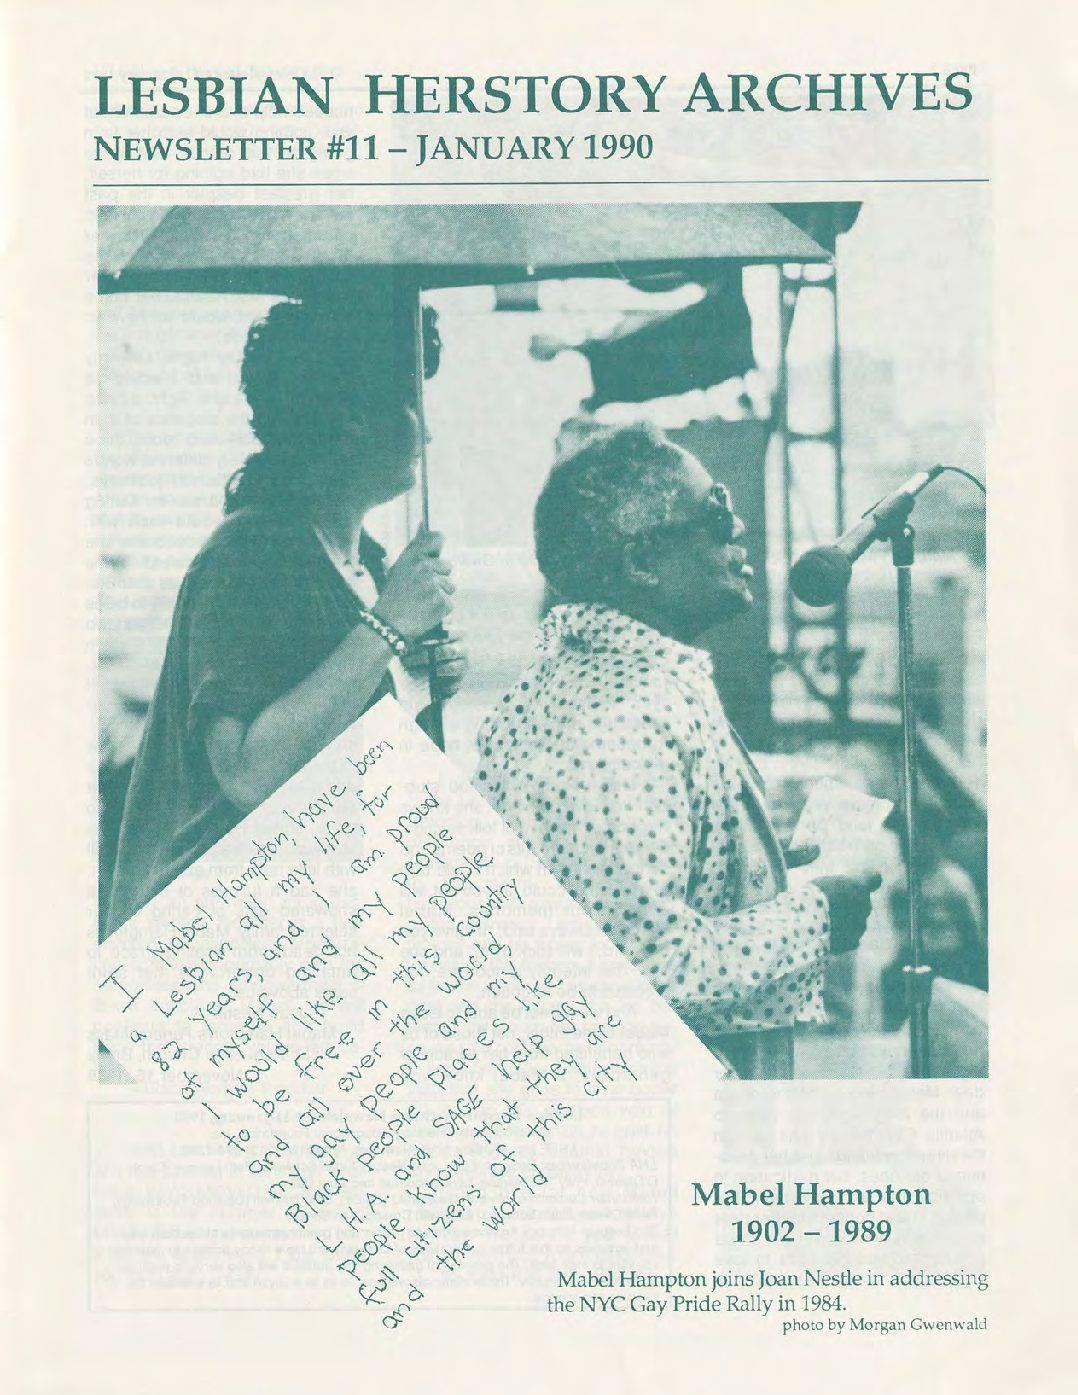 LESBIAN HERSTORY ARCHIVES
NEWSLETTER #11 – JANUARY 1990
I Mabel Hampton, have been
a Lesbian all my life, for
82 years, and I am proud
of myself and my people
I would like all my people
to be free in this country
and all over the world,
my gay people and my
Black people places like
L.H.A. and SAGE help gay
people know that they are
full citizens of this city
and the world
Mabel Hampton
1902 – 1989
Mabel Hampton joins Joan Nestle in addressing
the NYC Gay Pride Rally in 1984.
photo by Morgan Gwenwald